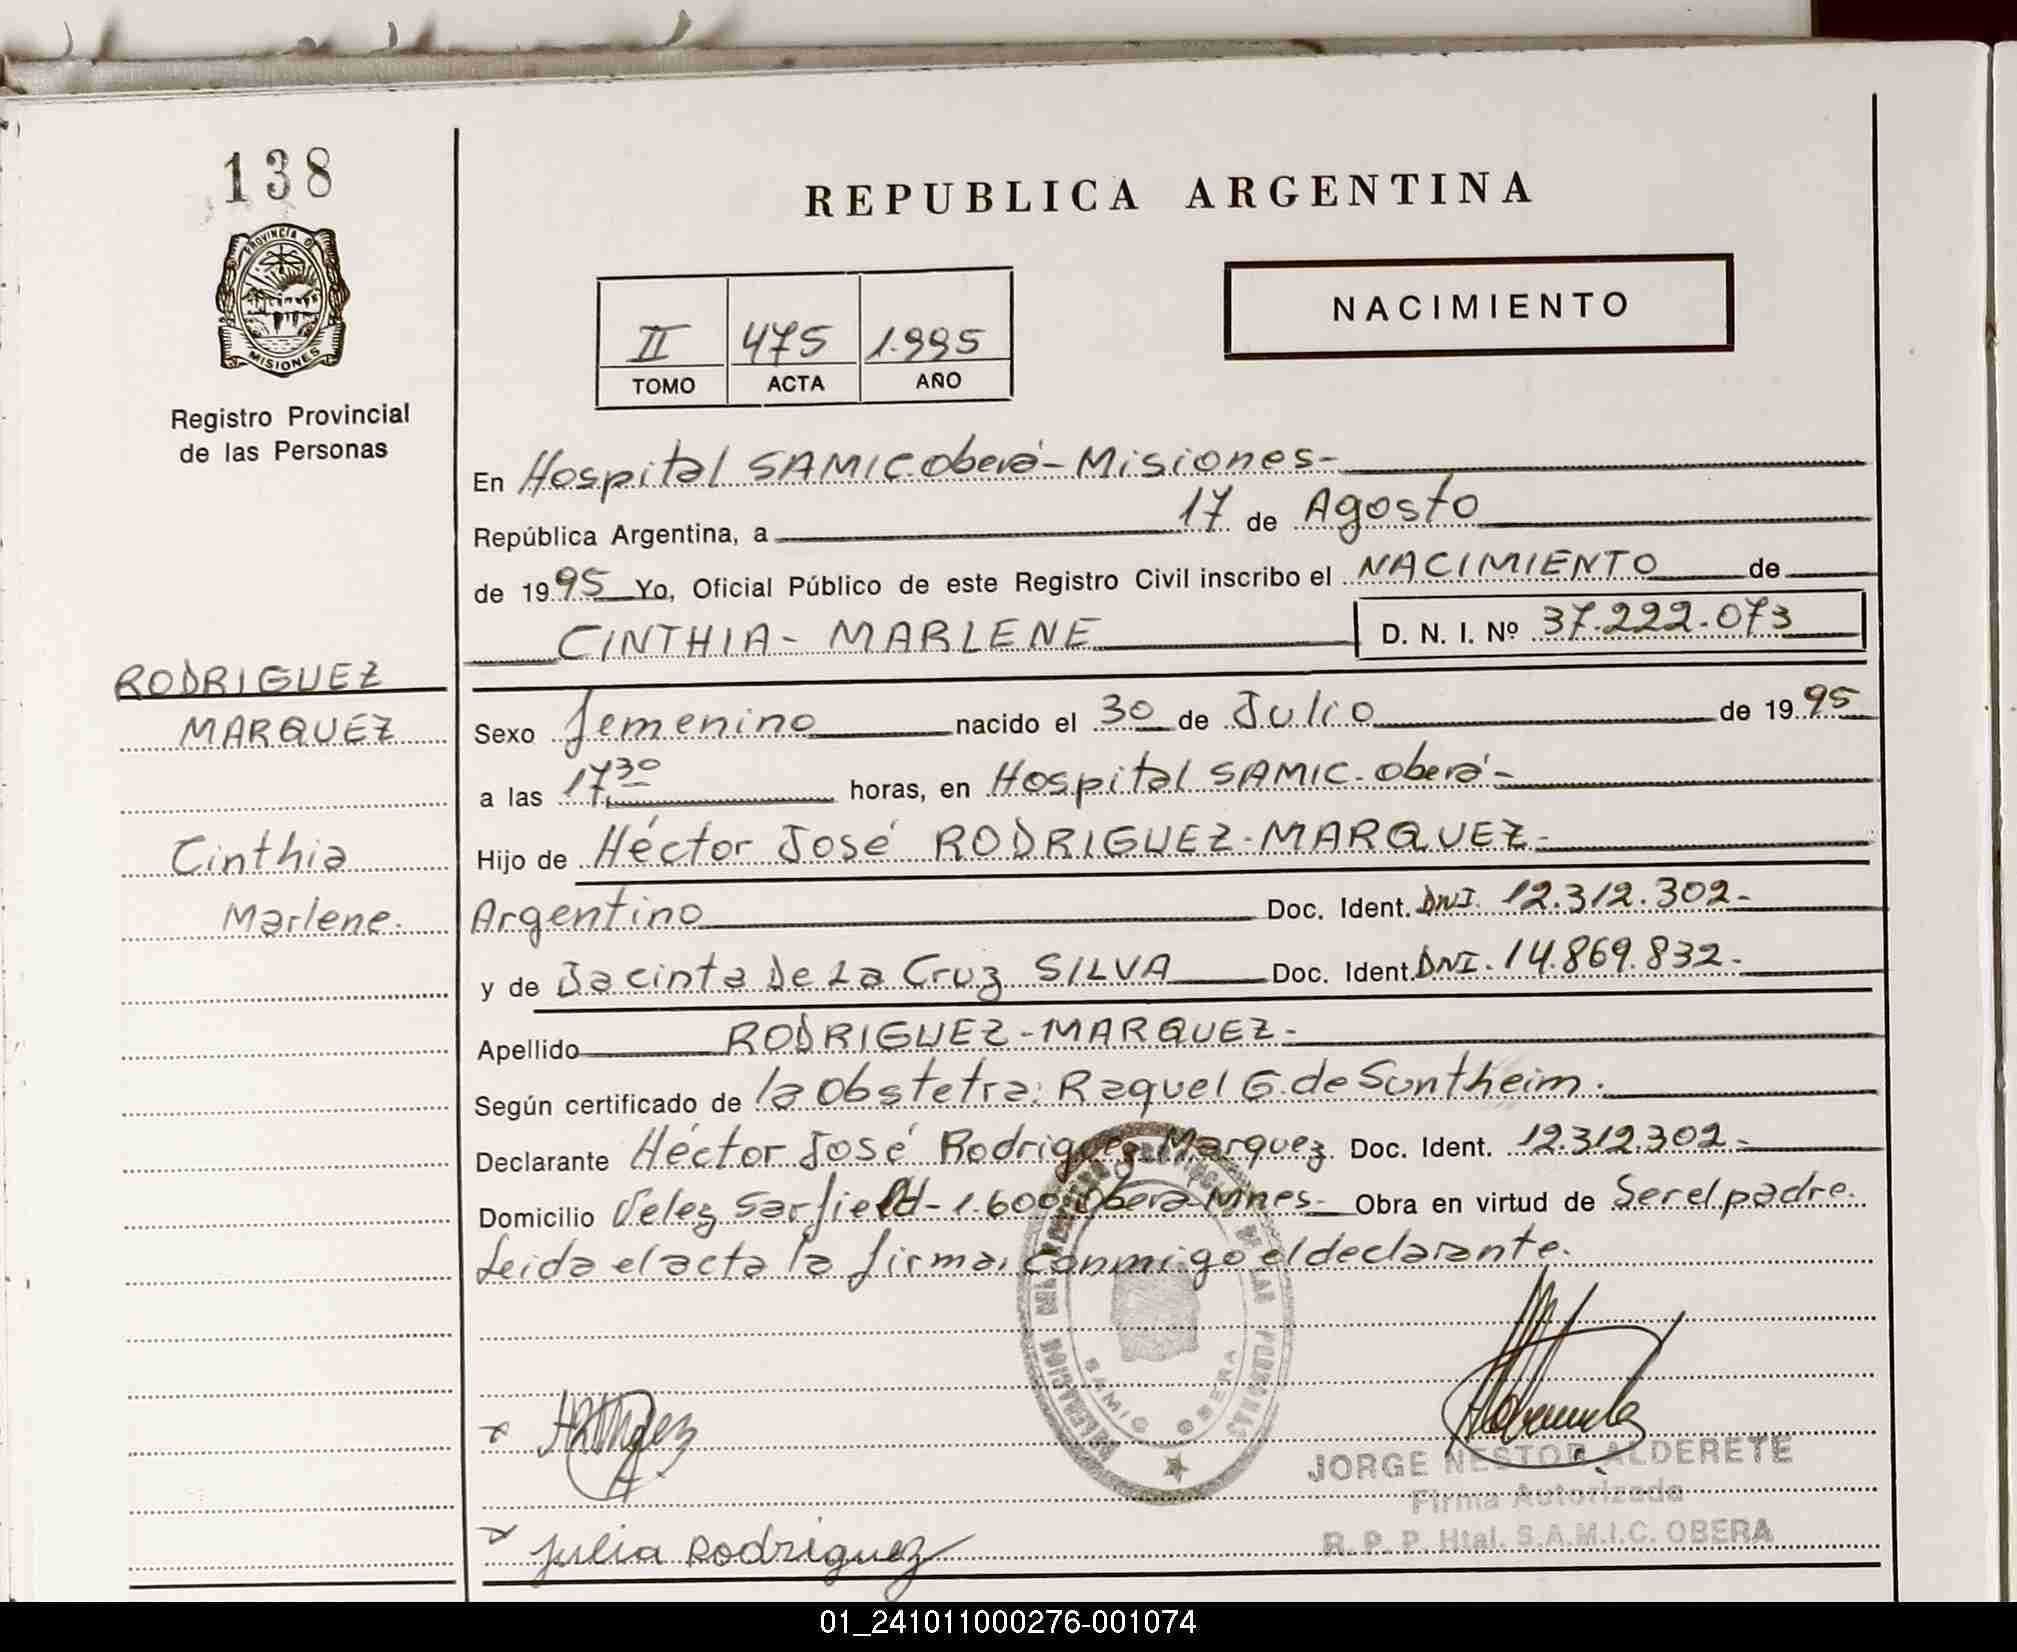 138
REPUBLICA ARGENTINA
PROVINCIA DE
MISIONES
Registro Provincial
de las Personas
II 475 1.995
TOMO ACTA AÑO
NACIMIENTO
En Hospital SAMIC. oberá - Misiones -
República Argentina, a 17 de Agosto
de 1995 Yo, Oficial Público de este Registro Civil inscribo el NACIMIENTO de
CINTHIA - MARLENE D. N. I. Nº 37.222.073
RODRIGUEZ
MARQUEZ
Cinthia
Marlene.
Sexo femenino nacido el 30 de Julio de 1995
a las 17,30 horas, en Hospital SAMIC. oberá -
Hijo de Héctor José RODRIGUEZ - MARQUEZ -
Argentino Doc. Ident. DNI. 12.312.302 -
y de Jacinta De La Cruz SILVA Doc. Ident. DNI. 14.869.832 -
Apellido RODRIGUEZ - MARQUEZ -
Según certificado de la Obstetra: Raquel G. de Suntheim.
Declarante Héctor José Rodriguez Marquez. Doc. Ident. 12.312.302 -
Domicilio Velez Sarfield - 1.600 Oberá Mnes - Obra en virtud de Ser el padre.
Leida el acta la firma, conmigo el declarante.
SAMIC OBERA
JORGE NESTOR ALDERETE
Firma Autorizada
R. P. P. Htal. S.A.M.I.C. OBERA
Julia Rodriguez
01_241011000276-001074